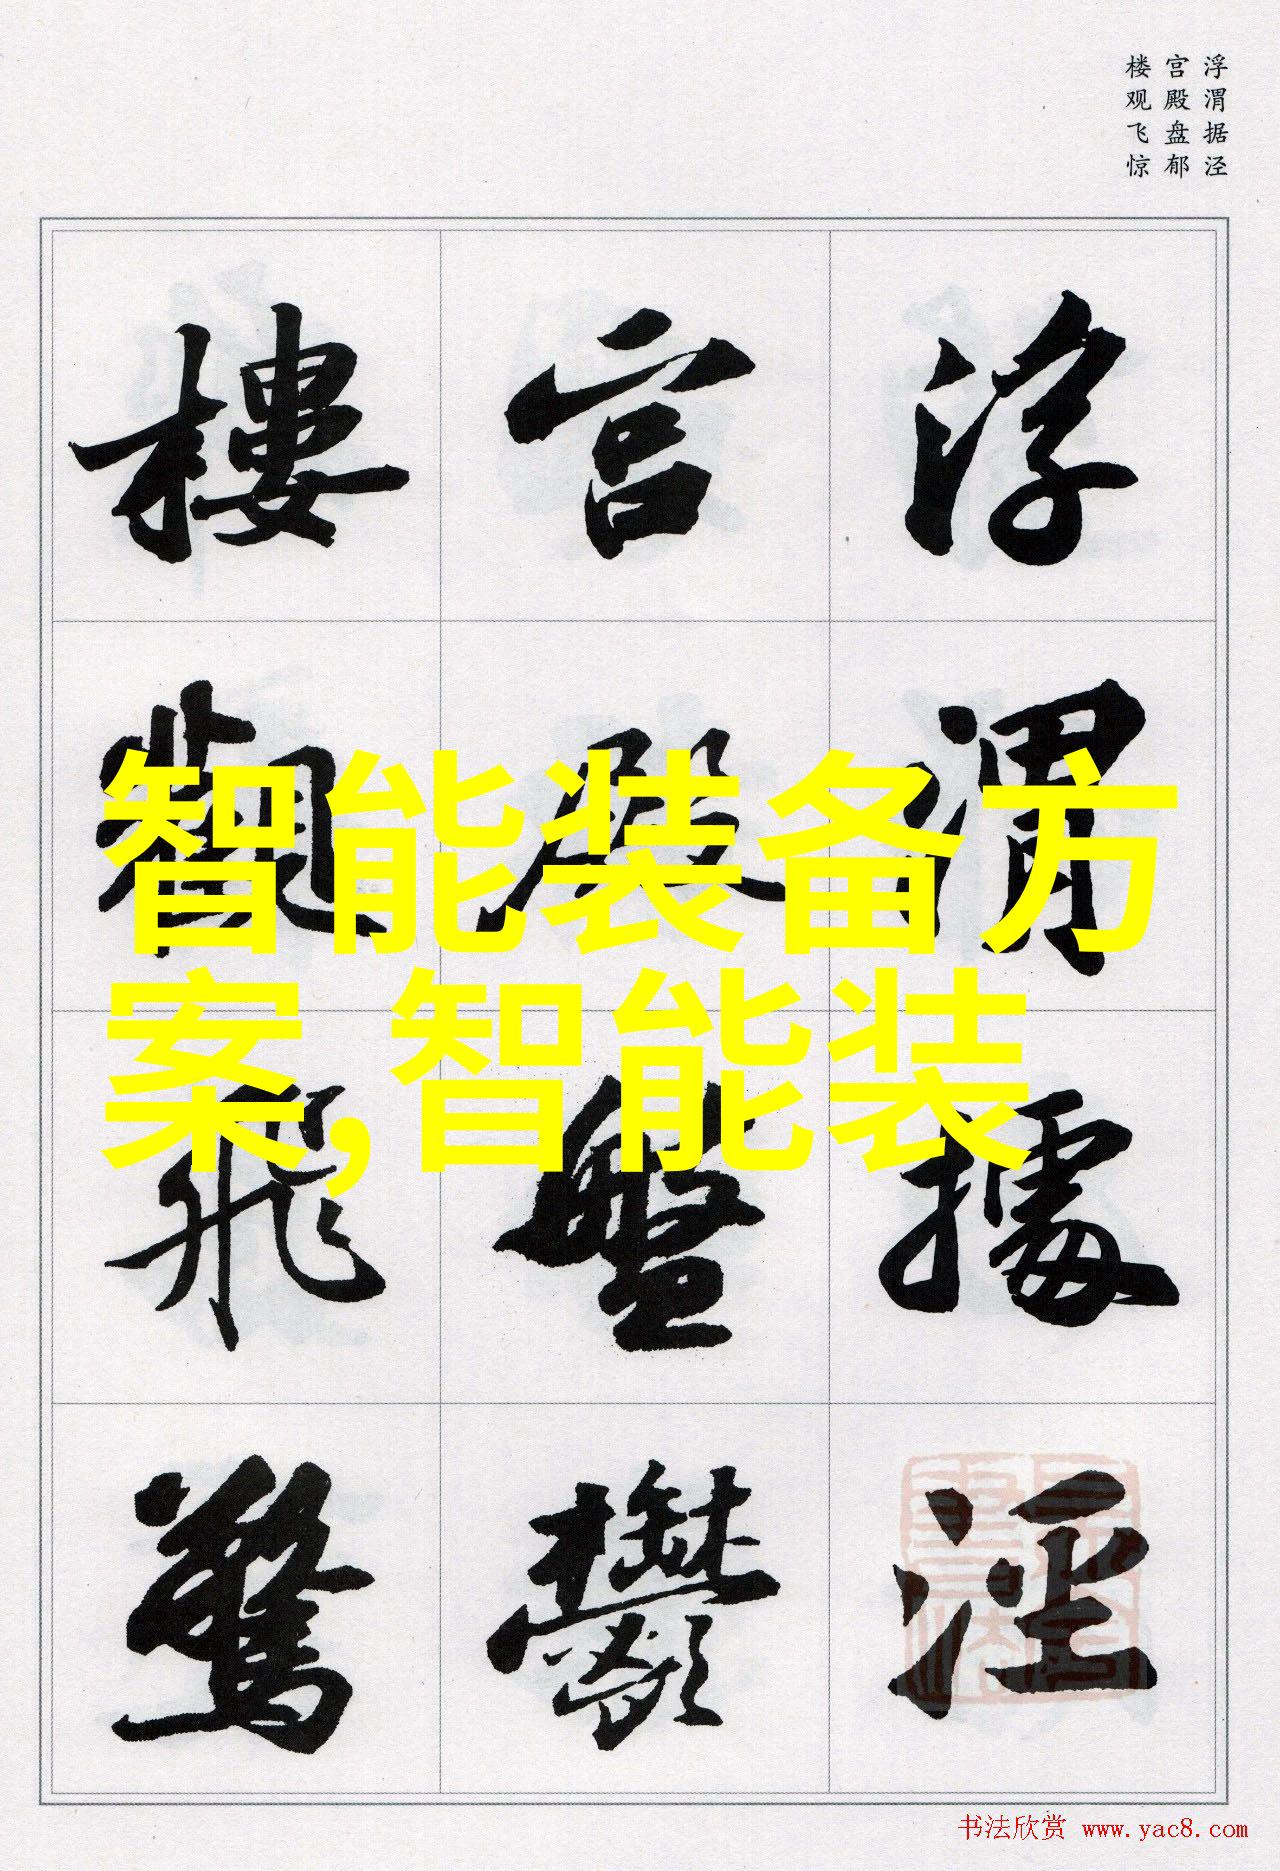 浮渭据泾
宫殿盘郁
楼观飞惊
浮渭據泾
宫殿盤鬱
樓觀飛驚
智能装备方
案,智能装
书法欣赏 www.yac8.com